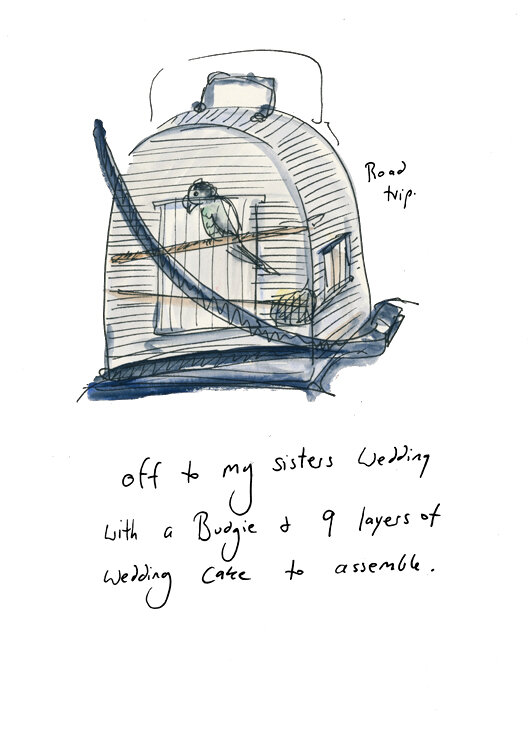 Road
trip.
off to my sisters wedding
with a Budgie & 9 layers of
wedding cake to assemble.